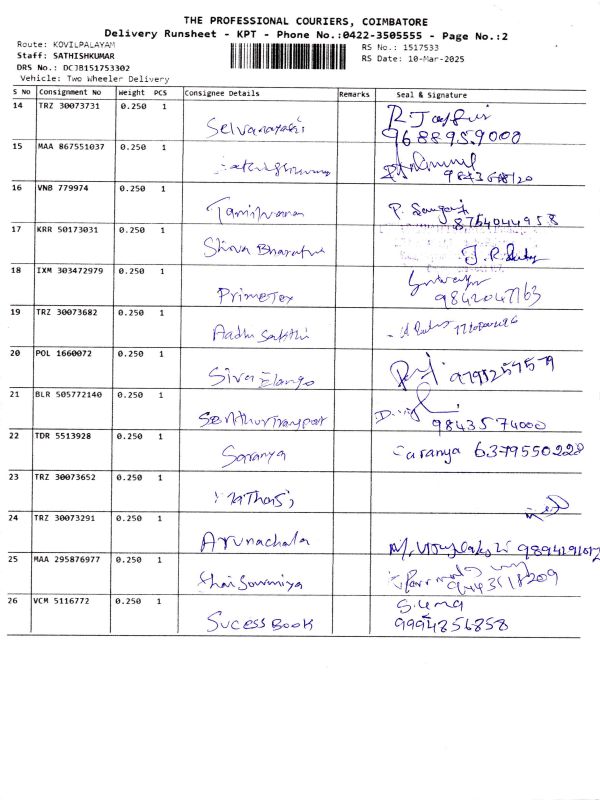 THE PROFESSIONAL COURIERS, COIMBATORE
Delivery Runsheet - KPT - Phone No.:0422-3505555 - Page No.:2
Route: KOVILPALAYAM
RS No.: 1517533
Staff: SATHISHKUMAR
RS Date: 10-Mar-2025
DRS No.: DCJB151753302
Vehicle: Two Wheeler Delivery
S No Consignment No Weight PCS Consignee Details Remarks Seal & Signature
14 TRZ 30073731 0.250 1
Selvanayaki
9688959000
15 MAA 867551037 0.250 1
16 VNB 779974 0.250 1
Tamilvanan P. Sangeet
8754044958
17 KRR 50173031 0.250 1
Shiva Bharathi
18 IXM 303472979 0.250 1
PrimeTex 9842047163
19 TRZ 30073682 0.250 1
Aadhi Sakthi
20 POL 1660072 0.250 1
Siva Elango 9791257579
21 BLR 505772140 0.250 1
Senthur Transport 9843574000
22 TDR 5513928 0.250 1
Saranya Saranya 6379550228
23 TRZ 30073652 0.250 1
24 TRZ 30073291 0.250 1
Arunachala
25 MAA 295876977 0.250 1
Shai Sowmiya
26 VCM 5116772 0.250 1
Sucess Book
9994856858